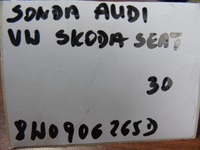 SONDA AUDI
VW SKODA SEAT
30
8W0906265D